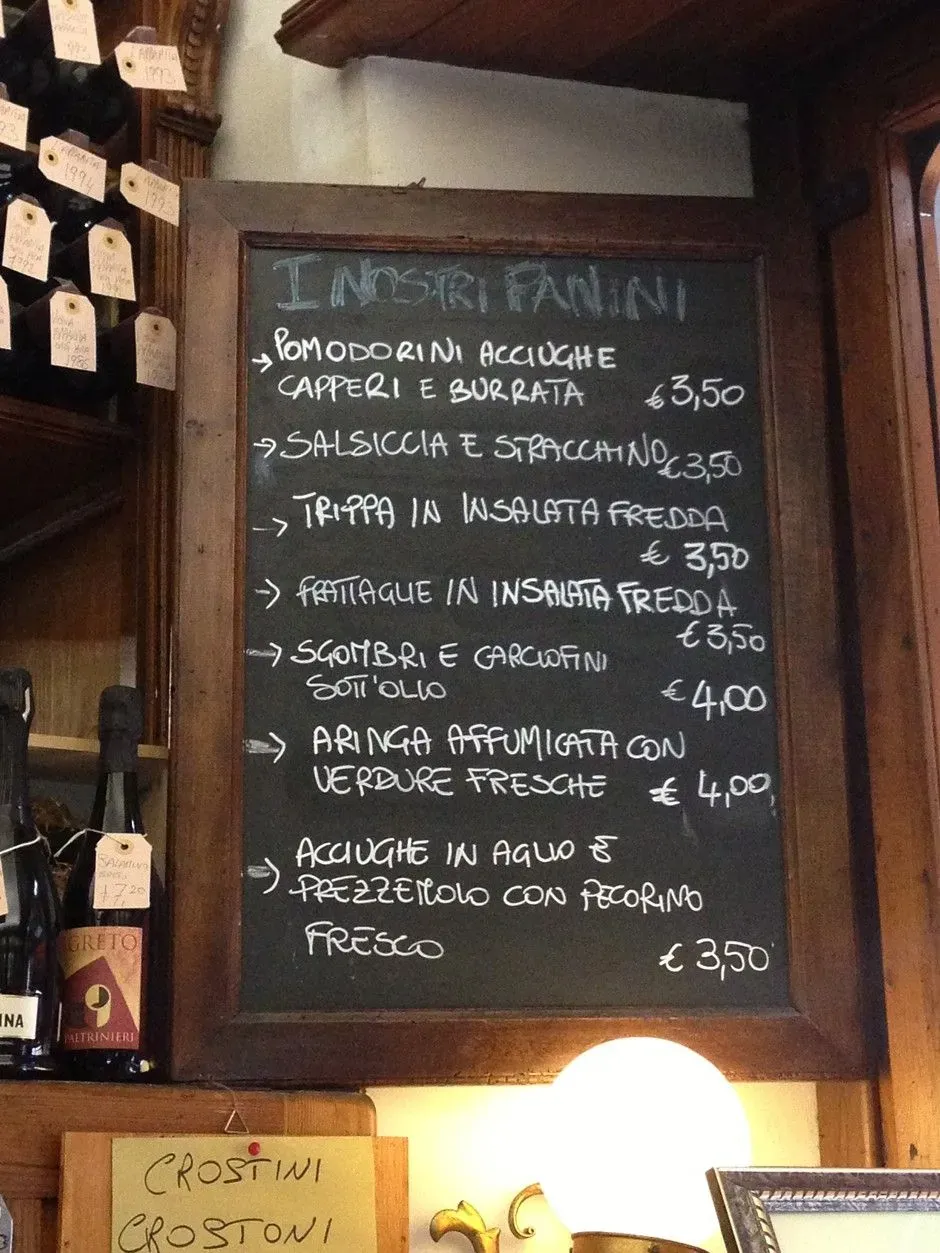 I NOSTRI PANINI
→ POMODORINI ACCIUGHE
CAPPERI E BURRATA €3,50
→ SALSICCIA E STRACCHINO €3,50
→ TRIPPA IN INSALATA FREDDA
€ 3,50
→ FRATTAGLIE IN INSALATA FREDDA
€3,50
→ SGOMBRI E CARCIOFINI
SOTT'OLIO € 4,00
→ ARINGA AFFUMICATA CON
VERDURE FRESCHE € 4,00
→ ACCIUGHE IN AGLIO E
PREZZEMOLO CON PECORINO
FRESCO € 3,50
1993
1994
€7,20
GRETO
PALTRINIERI
CROSTINI
CROSTONI